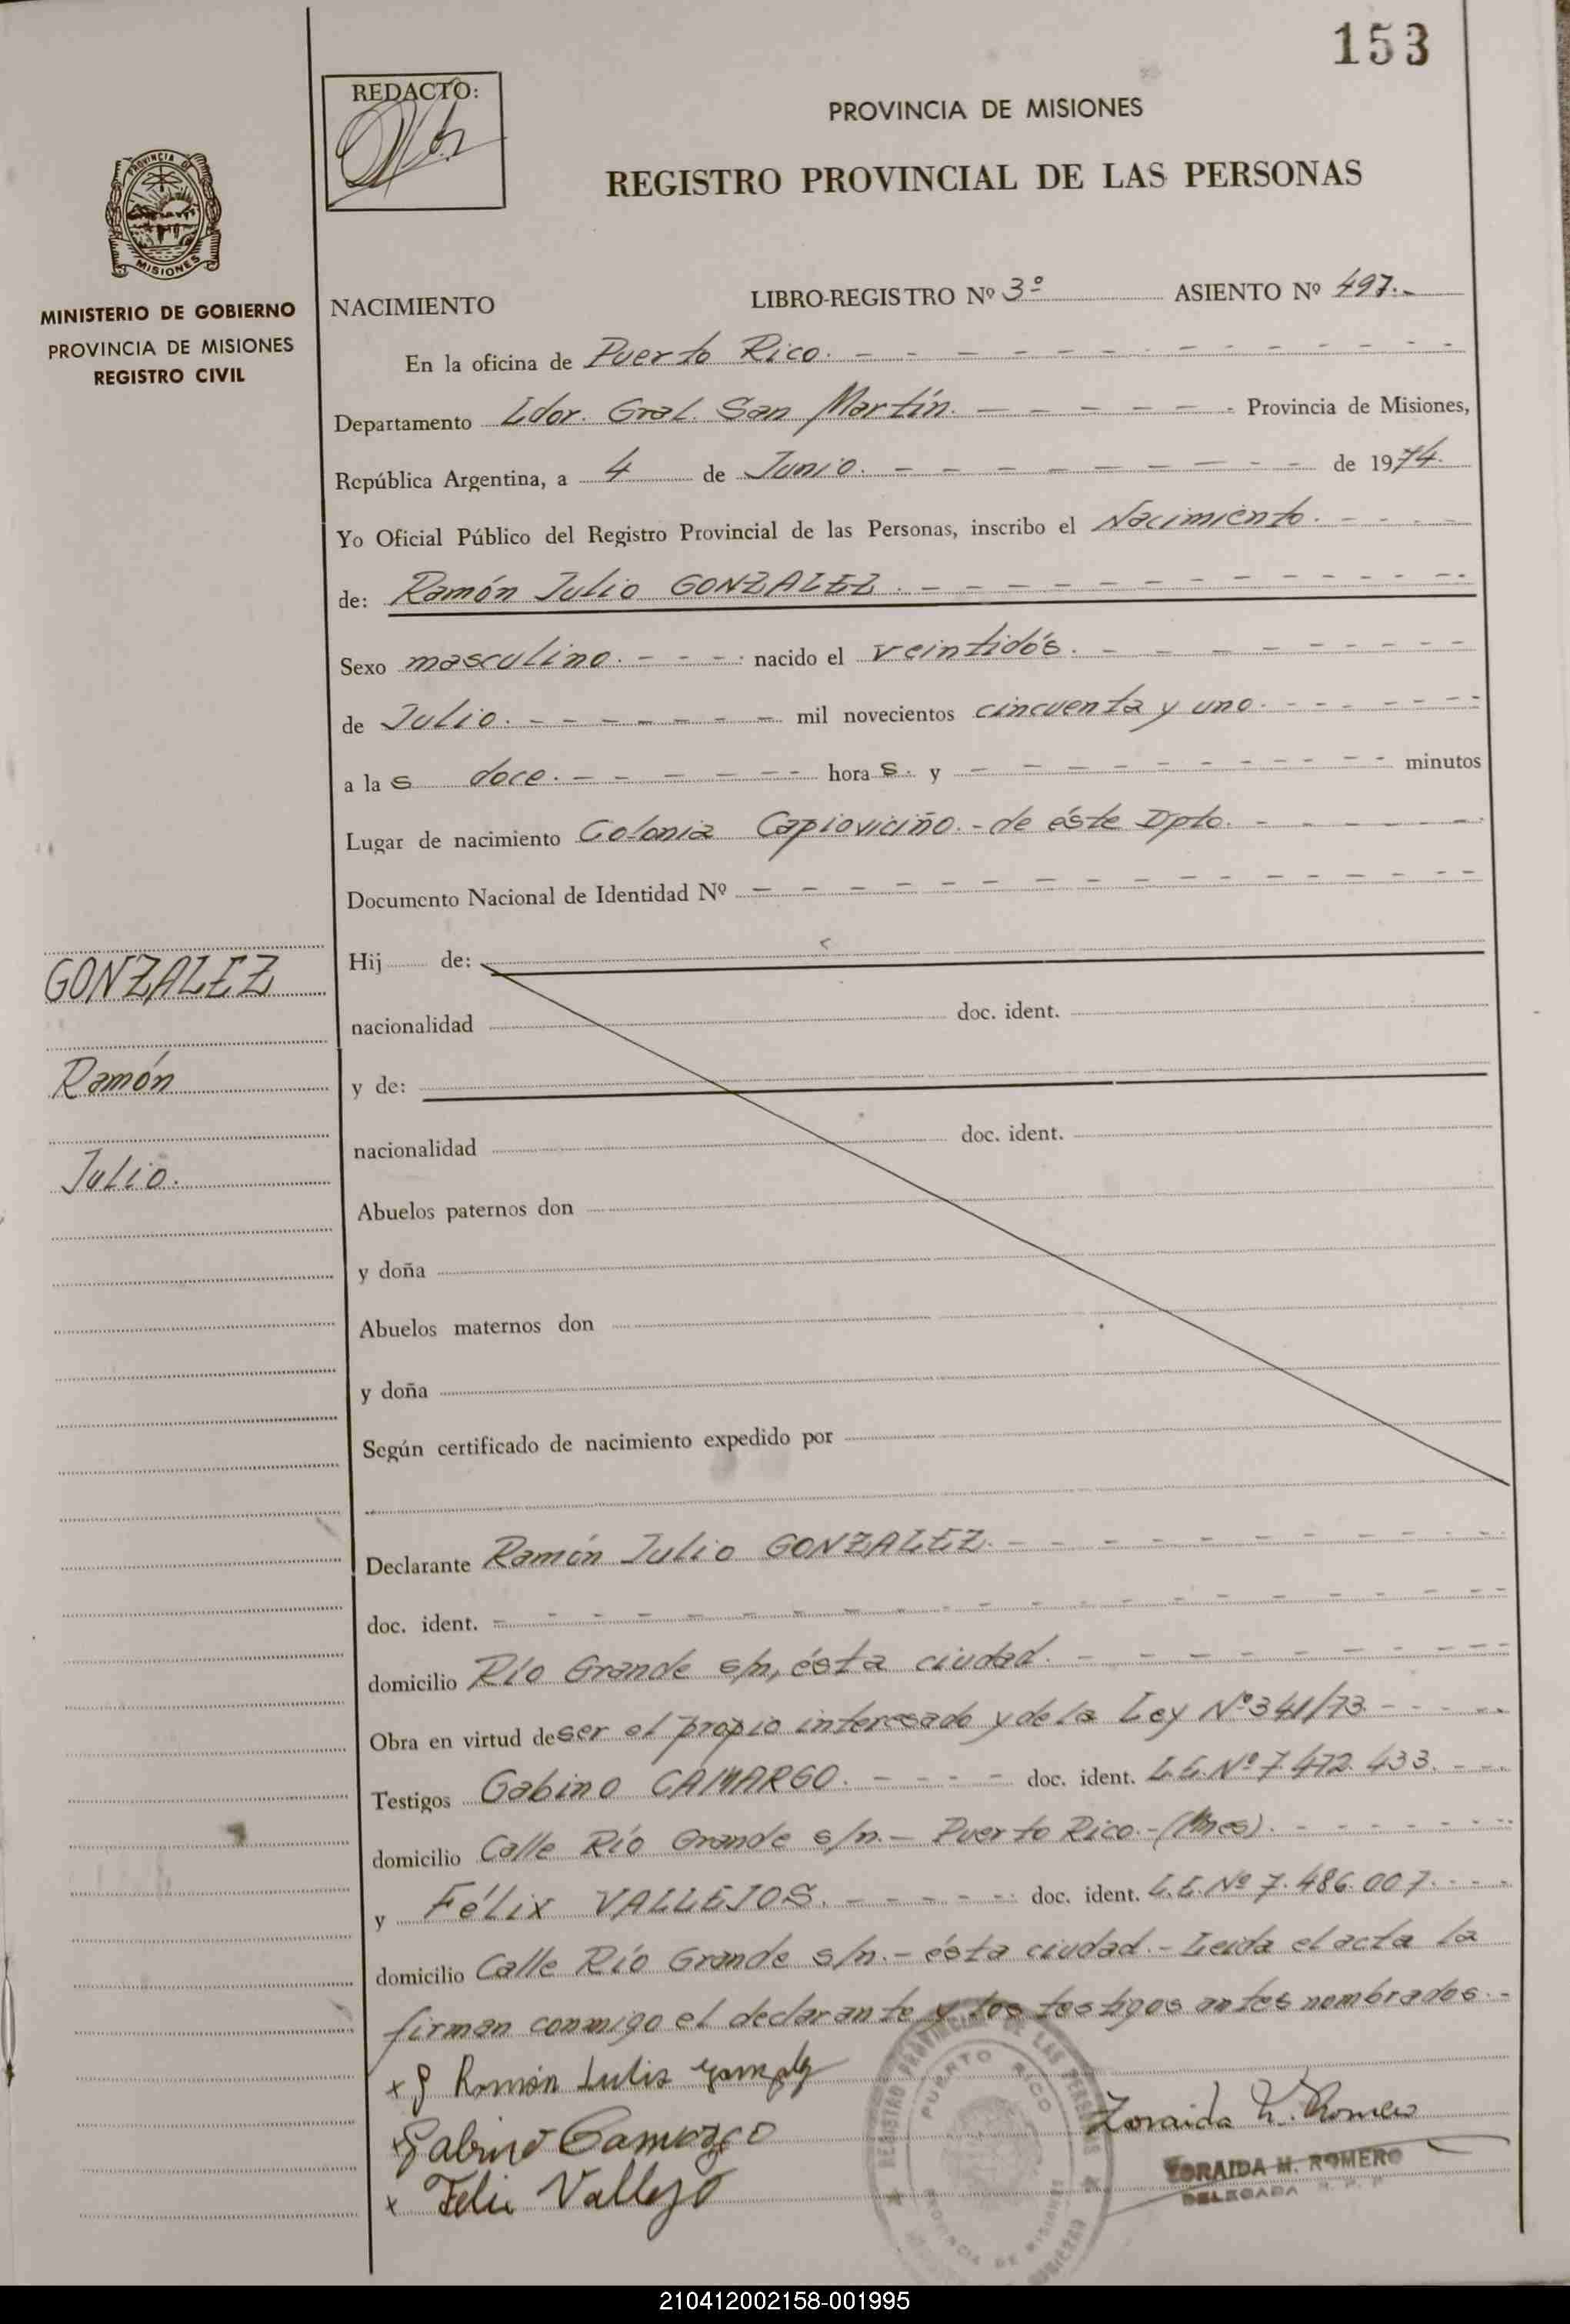 153
REDACTO:
PROVINCIA DE MISIONES
REGISTRO PROVINCIAL DE LAS PERSONAS
PROVINCIA DE
MISIONES
MINISTERIO DE GOBIERNO
PROVINCIA DE MISIONES
REGISTRO CIVIL
NACIMIENTO LIBRO-REGISTRO Nº 3º ASIENTO Nº 497.-
En la oficina de Puerto Rico. - - - - - - - - - - - -
Departamento Ldor. Gral. San Martín. - - - - - - - Provincia de Misiones,
República Argentina, a 4 de Junio. - - - - - - - - - de 1974.
Yo Oficial Público del Registro Provincial de las Personas, inscribo el Nacimiento. - - - -
de: Ramón Julio GONZALEZ. - - - - - - - - - - - -
Sexo masculino. - - - - nacido el veintidós. - - - - - - - -
de Julio. - - - - - - - mil novecientos cincuenta y uno. - - - - - -
a la s doce. - - - - - - - hora s. y - - - - - - - - - - minutos
Lugar de nacimiento Colonia Capioviciño. - de éste Dpto. - - - - - -
Documento Nacional de Identidad Nº - - - - - - - - - - - - - - -
Hij de:
nacionalidad doc. ident.
y de:
nacionalidad doc. ident.
Abuelos paternos don
y doña
Abuelos maternos don
y doña
Según certificado de nacimiento expedido por
GONZALEZ
Ramón
Julio.
Declarante Ramón Julio GONZALEZ. - - - - - - - - - - -
doc. ident. - - - - - - - - - - - - - - - - - - - -
domicilio Río Grande s/n, ésta ciudad. - - - - - - - - - -
Obra en virtud de ser el propio interesado y de la Ley Nº 341/73 - - - - -
Testigos Gabino CAMARGO. - - - - doc. ident. L.E. Nº 7.472.433. - - -
domicilio Calle Río Grande s/n. - Puerto Rico. - (Mnes). - - - - - -
y Félix VALLEJOS. - - - - - - doc. ident. L.E. Nº 7.486.007. - - -
domicilio Calle Río Grande s/n. - ésta ciudad. - Leída el acta la
firman conmigo el declarante y los testigos antes nombrados. -
x Ramón Julio
Gabino Camargo
x Feli Vallejo
REGISTRO PROVINCIAL DE LAS PERSONAS
PUERTO RICO
PROVINCIA DE MISIONES
Zoraida M. Romero
ZORAIDA M. ROMERO
DELEGADA R. P. P
210412002158-001995